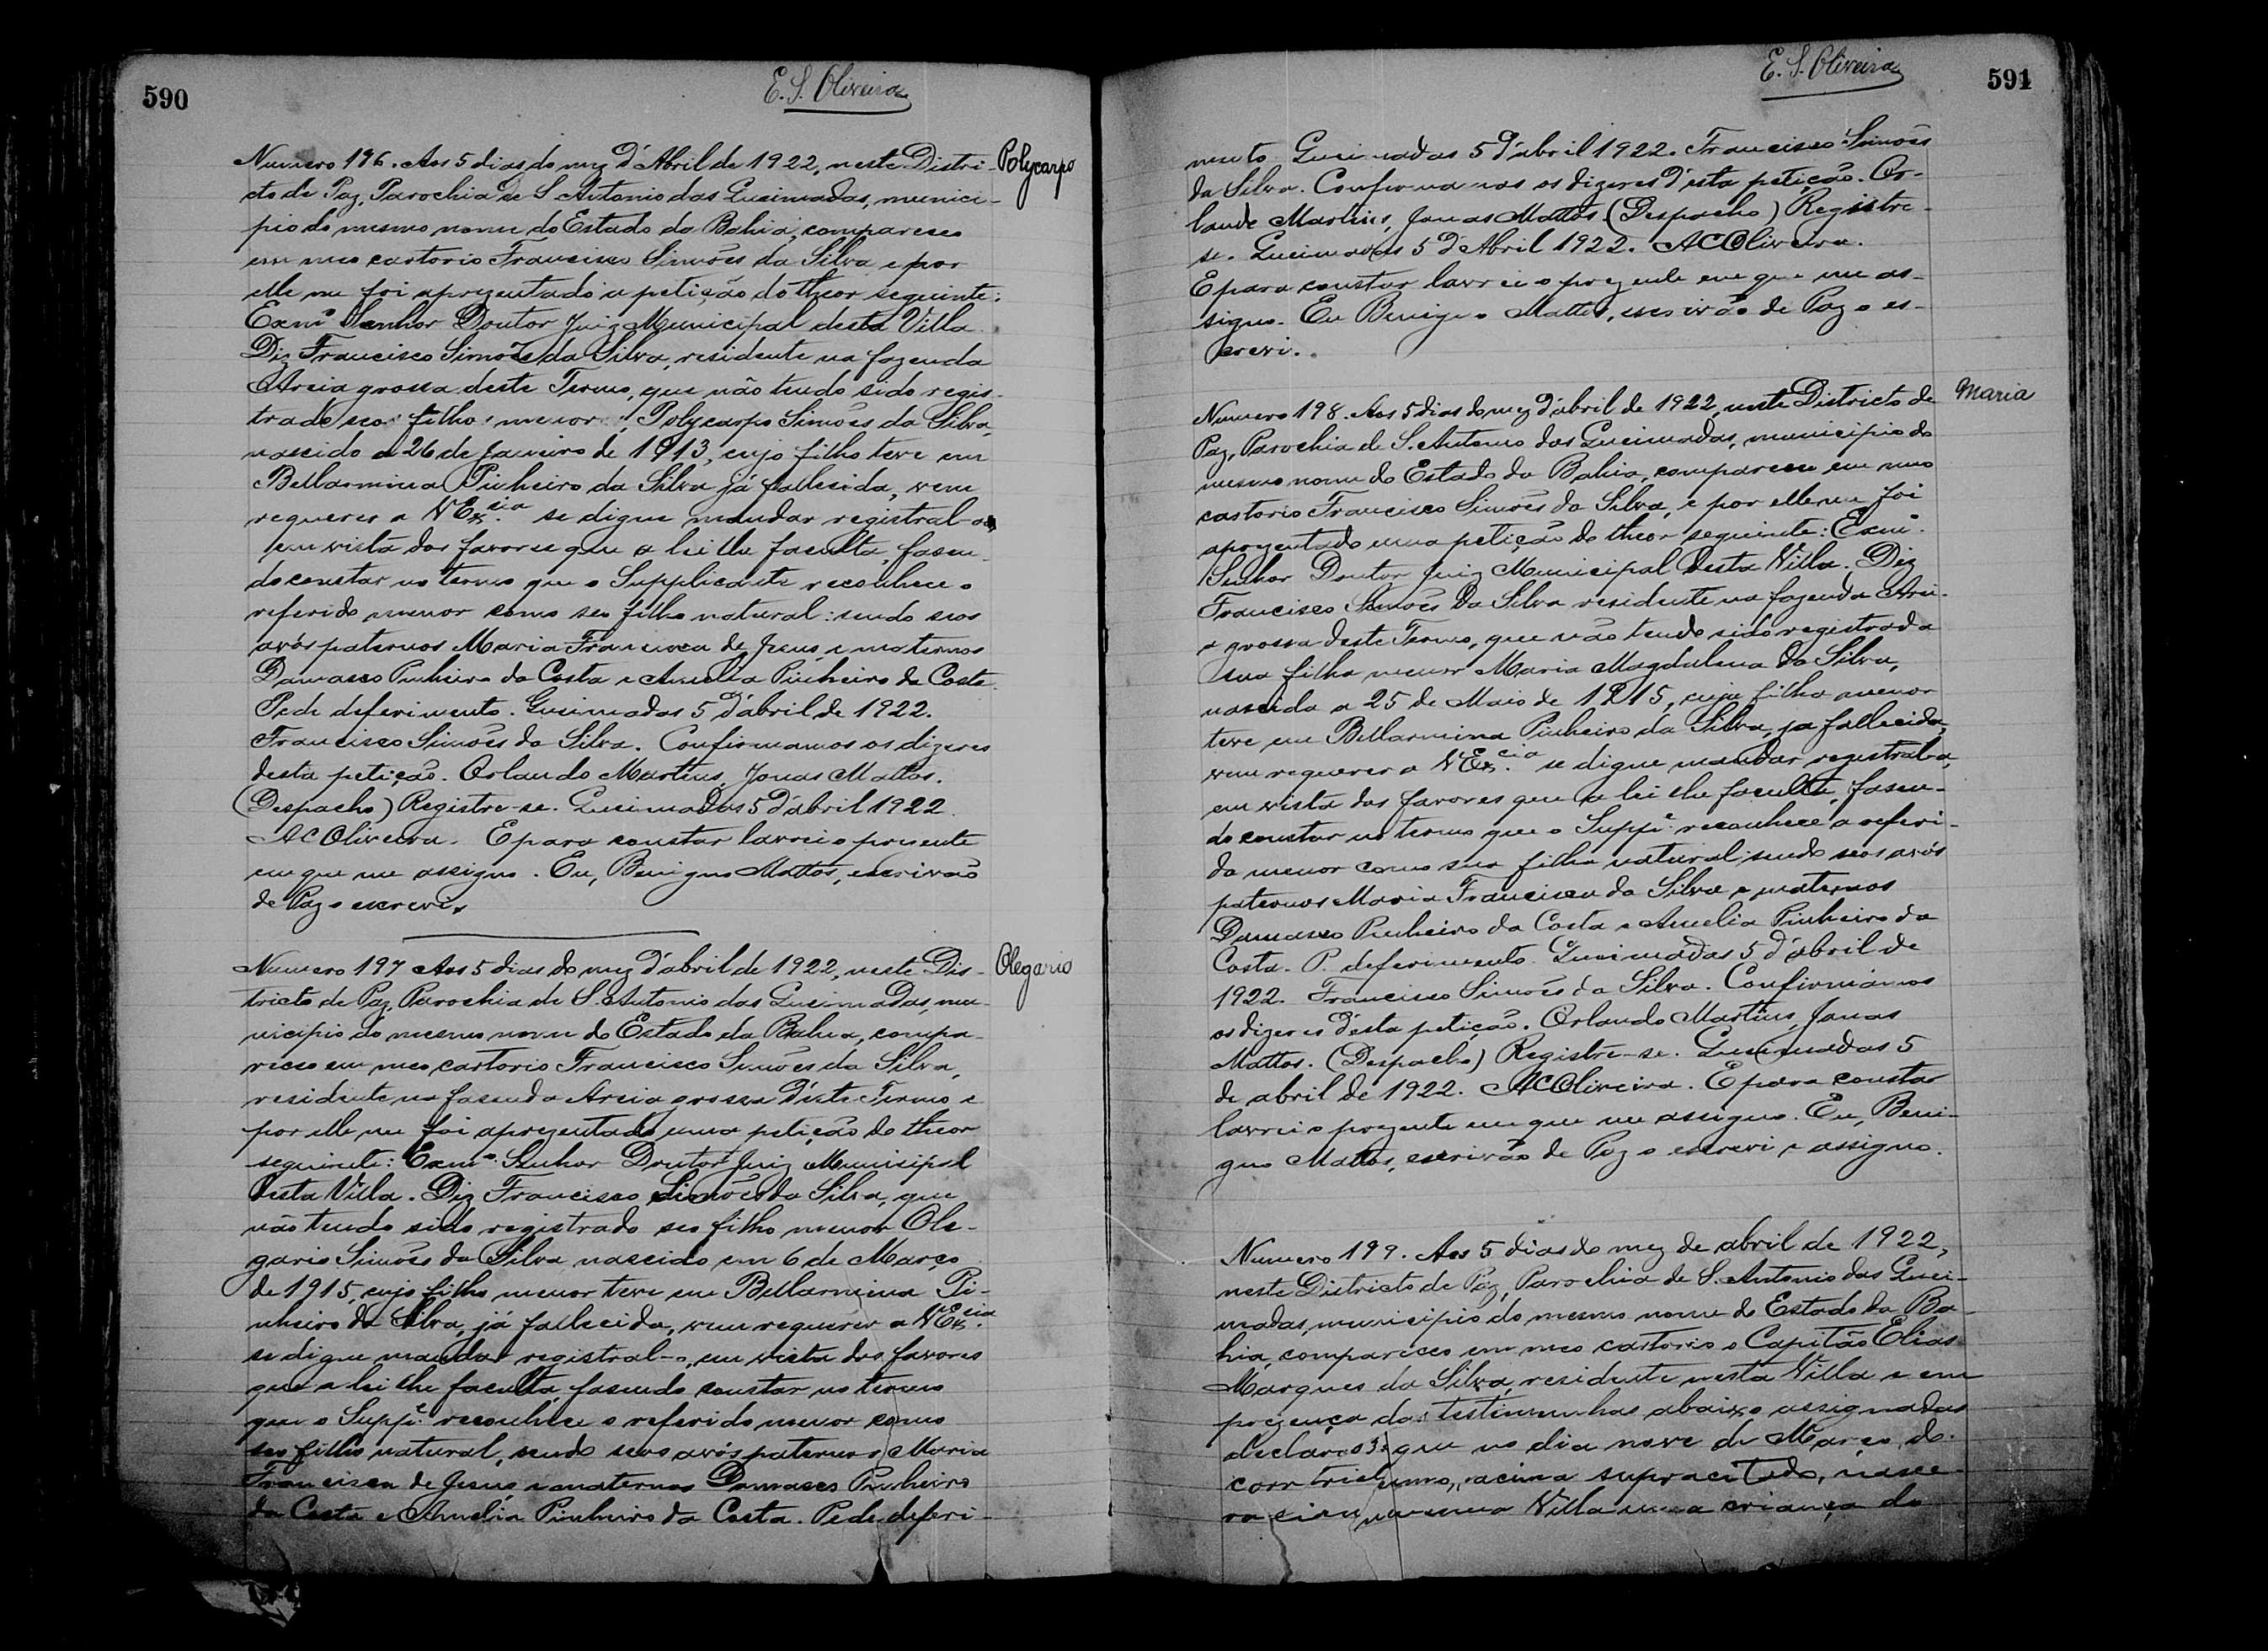 590
E. S. Oliveira
Numero 196. Aos 5 dias do mez d'Abril de 1922, neste Distri-
Polycarpo
cto de Paz, Parochia de S Antonio das Queimadas, munici-
pio do mesmo nome do Estado da Bahia, compareceo
em meo cartorio Francisco Simões da Silva e por
elle me foi aprezentado a petição do theor seguinte:
Exmº Senhor Doutor Juiz Municipal desta Villa.
Diz Francisco Simões da Silva, residente na fazenda
Areia grossa deste Termo, que não tendo sido regis-
trado seo filho menor Polycarpo Simões da Silva,
nascido a 26 de Janeiro de 1913, cujo filho teve em
Bellarmina Pinheiro da Silva já fallecida, vem
requerer a V Excia. se digne mandar registral-o,
em vista dos favores que a lei lhe faculta, fasen-
do constar no termo que o Supplicante reconhece o
referido menor como seo filho natural: sendo seos
avós paternos Maria Francisca de Jesus e maternos
Damasco Pinheiro da Costa e Amelia Pinheiro da Costa.
Pede deferimento. Queimadas 5 d'abril de 1922.
Francisco Simões da Silva. Confirmamos os dizeres
desta petição. Orlando Martins, Jonas Mattos.
(Despacho) Registre-se. Queimadas 5 d'abril 1922.
A C Oliveira. E para constar lavrei o presente
em que me assigno. Eu, Benigno Mattos, escrivão
de Paz o escrevi.
Numero 197 Aos 5 dias do mez d'abril de 1922, neste Dis-
Olegario
tricto de Paz, Parochia de S. Antonio das Queimadas, mu-
nicipio do mesmo nome do Estado da Bahia, compa-
receo em meo cartorio Francisco Simões da Silva,
residente na fasenda Areia grossa d'este Termo e
por elle me foi aprezentado uma petição do theor
seguinte: Exmº. Senhor Doutor Juiz Municipal
desta Villa. Diz Francisco Simões da Silva, que
não tendo sido registrado seo filho menor Ole-
gario Simões da Silva nascido em 6 de Março
de 1915, cujo filho menor teve em Bellarmina Pi-
nheiro da Silva, já fallecida, vem requerer a V Excia.
se digne mandar registral-o, em vista dos favores
que a lei lhe faculta, fasendo constar no termo
que o Suppe. reconhece o referido menor como
seo filho natural, sendo seos avós paternos Maria
Francisca de Jesus e maternos Damasco Pinheiro
da Costa e Amelia Pinheiro da Costa. Pede deferi-
E. S. Oliveira
591
mento. Queimadas 5 d'abril 1922. Francisco Simões
da Silva. Confirmamos os dizeres d'esta petição. Or-
lando Martins, Jonas Mattos (Despacho) Registre-
se. Queimadas 5 d'Abril 1922. A C Oliveira.
E para constar lavrei o prezente em que me as-
signo. Eu Benigno Mattos, escrivão de Paz o es-
crevi.
Numero 198. Aos 5 dias do mez d'abril de 1922, neste Districto de
Maria
Paz, Parochia de S. Antonio das Queimadas, municipio do
mesmo nome do Estado da Bahia, compareceu em meo
cartorio Francisco Simões da Silva, e por elle me foi
aprezentado uma petição do theor seguinte: Exmº.
Senhor Doutor Juiz Municipal desta Villa. Diz
Francisco Simões da Silva residente na fazenda Arei-
a grossa deste Termo, que não tendo sido registrada
sua filha menor Maria Magdalena da Silva,
nascida a 25 de Maio de 1915, cuja filha menor
teve em Bellarmina Pinheiro da Silva, ja fallecida,
vem requerer a V Excia. se digne mandar registral-a,
em vista dos favores que a lei lhe faculta, fasen-
do constar no termo que o Suppe. reconhece a referi-
da menor como sua filha natural sendo seos avós
paternos Maria Francisca da Silva e maternos
Damasco Pinheiro da Costa e Amelia Pinheiro da
Costa. P. deferimento. Queimadas 5 d'abril de
1922. Francisco Simões da Silva. Confirmamos
os dizeres d'esta petição. Orlando Martins, Jonas
Mattos. (Despacho) Registre-se. Queimadas 5
de abril de 1922. A C Oliveira. E para constar
lavrei o prezente em que me assigno. Eu, Beni-
gno Mattos, escrivão de Paz o escrevi e assigno.
Numero 199. Aos 5 dias do mez de abril de 1922,
neste Districto de Paz, Parochia de S. Antonio das Quei-
madas, municipio do mesmo nome do Estado da Ba-
hia, compareceo em meo cartorio o Capitão Elias
Marques da Silva, residente nesta Villa e em
prezença das testimunhas abaixo assignadas
declarou que no dia nove de Março do
acima supracitado, nasce-
mesma Villa uma criança do